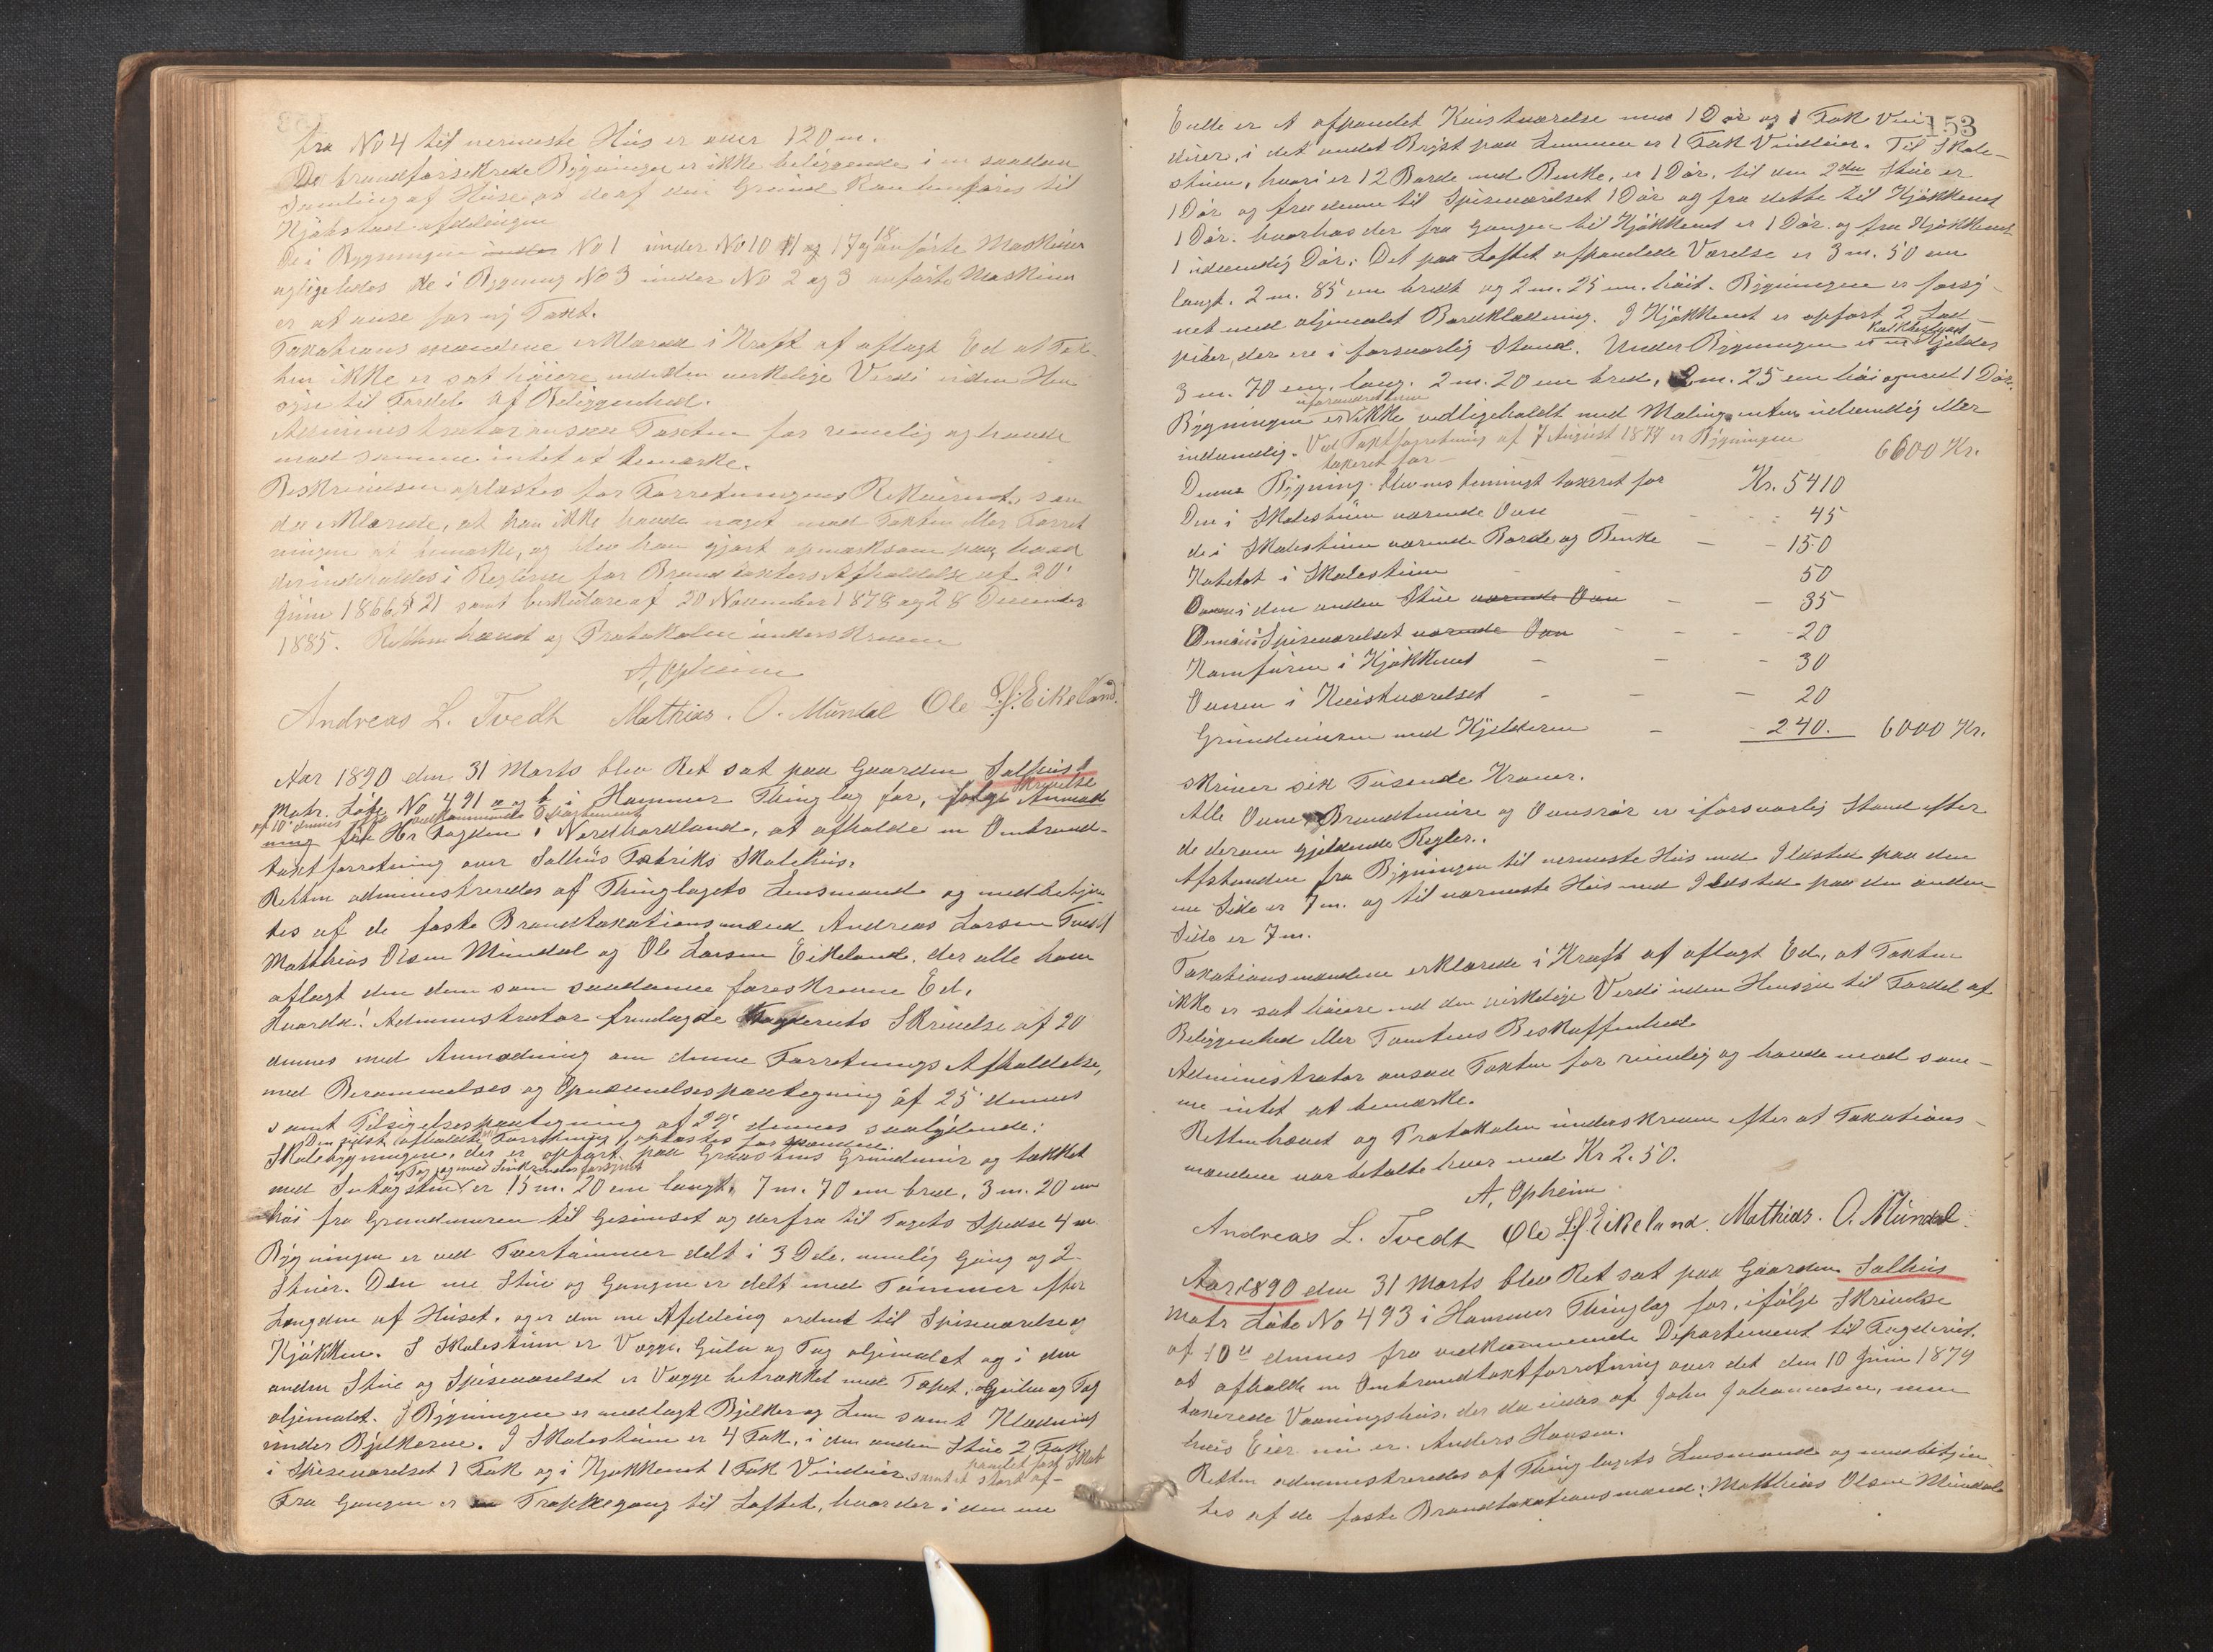 fra No 4 til nermeste Hus er over 120 m.
De brandforsikrede Bygninger er ikke beliggende i en saadan
Samling af Huse at de af den Grund kan henføres til
Kjøbstadafdelingen
De i Bygningen under No 1 under No 10 11 og 17 og 18 anførte Maskiner
ogligeledes de i Bygning No 3 under No 2 og 3 anførte Maskiner
er at anse for ny Taxt.
Taxationsmændene erklærede i Kraft af aflagt Ed at Tax-
ten ikke er sat høiere end den verkelige Verdi uden Hen
syn til Fordel af Beliggenhed.
Administrator ansaa Taxten for rimelig og havde
mod samme intet at bemærke.
Beskrivelsen oplæstes for Forretningens Rekvirent, som
der erklærede, at han ikke havde noget mod Taxten eller Forret
ningen at bemærke, og blev han gjort opmærksom paa, hvad
der indeholdes i Reglerne for Brandtaxters Afholdelse af 20'
Juni 1866 § 21 samt Cirkulære af 20 November 1878 og 28 December
1885. Retten hævet og Protokolen underskreven
A, Opheim
Andreas L. Tvedt Mathias. O. Mundal Ole L.s. Eikeland.
Aar 1890 den 31 Marts blev Ret sat paa Gaarden Salhus
Matr. Løbe No 491 a og b i Hammer Thinglag for, ifølge Skrivelse Anmod
af 10' dennes fra vedkommende Departement
ning fra Hr Fogden i Nordhordland, at afholde en Ombrand-
taxtforretning over Salhus Fabriks Skolehus.
Retten administreredes af Thinglagets Lensmand og medbetjen-
tes af de faste Brandtaxationsmænd Andreas Larsen Tvedt
Matthias Olsen Mundal og Ole Larsen Eikeland, der alle have
aflagt den dem som saadanne foreskrevne Ed.
Hvorda! Administrator fremlagde Fogderiets Skrivelse af 20
dennes med Anmodning om denne Forretnings Afholdelse,
med Berammelses og Opnævnelsespaategning af 25' dennes
samt Tilsigelsespaategning af 29' dennes saalydende:
Den sidst afholdte Forretning oplæstes for Mændene.
Skolebygningen, der er opført paa Graastens Grundmur og tækket
og Tag paa med Sinkrender forsynet
med Indtagsten er 15 m. 20 cm langt, 7 m. 70 cm bred, 3 m. 20 cm
høi fra Grundmuren til Gesimset og derfra til Tagets Spidse 4 m.
Bygningen er ved Tvertømmer delt i 3 Dele, nemlig Gang og 2
Stuer. Den ene Stue og Gangen er delt med Tømmer efter
Længden af Huset, og er den ene Afdeling ordnet til Spiseværelse og
Kjøkken. I Skolestuen er Vægge, Gulv og Tag oljemalet og i den
anden Stue og Spiseværelset er Vægge betrækket med Tapet, Gulv og Tag
oljemalet. I Bygningen er anbragt Bjelker og Lem samt Klædning
under Bjelkerne. I Skolestuen er 4 Fak, i den anden Stue 2 Fak
i Spiseværelset 1 Fak og i Kjøkkenet 1 Fak Vinduer samt et stort af-
panelet fast Skab
Fra Gangen er en Trappegang til Loftet, hvor der i den ene
153
Ende er et afpanelet Kvistværelse med 1 Dør og 1 Fak Vin
duer, i det andet Bryst paa Lemmen er 1 Fak Vinduer. Til Skole-
stuen, hvori er 12 Borde med Benke, er 1 Dør, til den 2den Stue er
1 Dør og fra denne til Spiseværelset 1 Dør og fra dette til Kjøkkenet
1 Dør. hvorhos der fra Gangen til Kjøkkenet er 1 Dør og fra Kjøkkenet
1 udvendig Dør. Det paa Loftet afpanelede Værelse er 3 m. 50 cm
langt. 2 m. 85 cm bredt og 2 m. 25 cm. høit. Bygningen er forsy-
net med oljemalet Bordklædning. I Kjøkkenet er opført 2 Lod-
piber, der ere i forsvarlig Stand. Under Bygningen er en Kjelder
3 m. 70 cm. lang. 2 m. 20 cm bred, 2 m. 25 cm høi og med 1 Dør.
Bygningen er ikke vedligeholdt med Maling enten udvendig eller
indvendig. Ved Taxtforretning af 7 August 1879 er Bygningen
takeret for — 6600 Kr.
Denne Bygning blev nu stemmigt taxeret for Kr. 5410
Den i Skolestuen værende Ovn — 45
de i Skolestuen værende Borde og Benke — 150
Katetet i Skolestuen 50
Ovnen i den anden Stue værende Ovn — 35
Ovnen i Spiseværelset værende Ovn — 20
Komfuren i Kjøkkenet — 30
Ovnen i Kvistværelset — 20
Grundmuren med Kjelderen — 240. 6000 Kr.
skriver sex Tusende Kroner.
Alle Ovne, Brandmure og Ovnsrør er i forsvarlig Stand efter
de derom gjeldende Regler.
Afstanden fra Bygningen til nermeste Hus med Ildsted paa den
ene Side er 7 m. og til nærmeste Hus med Ildsted paa den anden
Side er 7 m.
Taxationsmændene erklærede i Kraft af aflagt Ed, at Taxten
ikke er sat høiere end den virkelige Verdi uden Hensyn til Fordel af
Beliggenhed eller Tomtens Beskaffenhed.
Administrator ansaa Taxten for rimelig og havde mod sam-
me intet at bemærke.
Retten hævet og Protokolen underskreven efter at Taxations-
mændene var betalte hver med Kr 2.50.
A, Opheim
Andreas L. Tvedt Ole L.s. Eikeland. Mathias. O. Mundal.
Aar 1890 den 31 Marts blev Ret sat paa Gaarden Salhus
Matr Løbe No 493 i Hammer Thinglag for, ifølge Skrivelse
af 10de dennes fra vedkommende Departement til Fogderiet,
at afholde en Ombrandtaxtforretning over det den 10 Juni 1879
taxerede Vaaningshus, der da eiedes af John Johannesen, men
hvis Eier nu er. Anders Hansen.
Retten administreredes af Thinglagets Lensmand og medbetjen-
tes af de faste Brandtaxationsmænd: Matthias Olsen Mundal